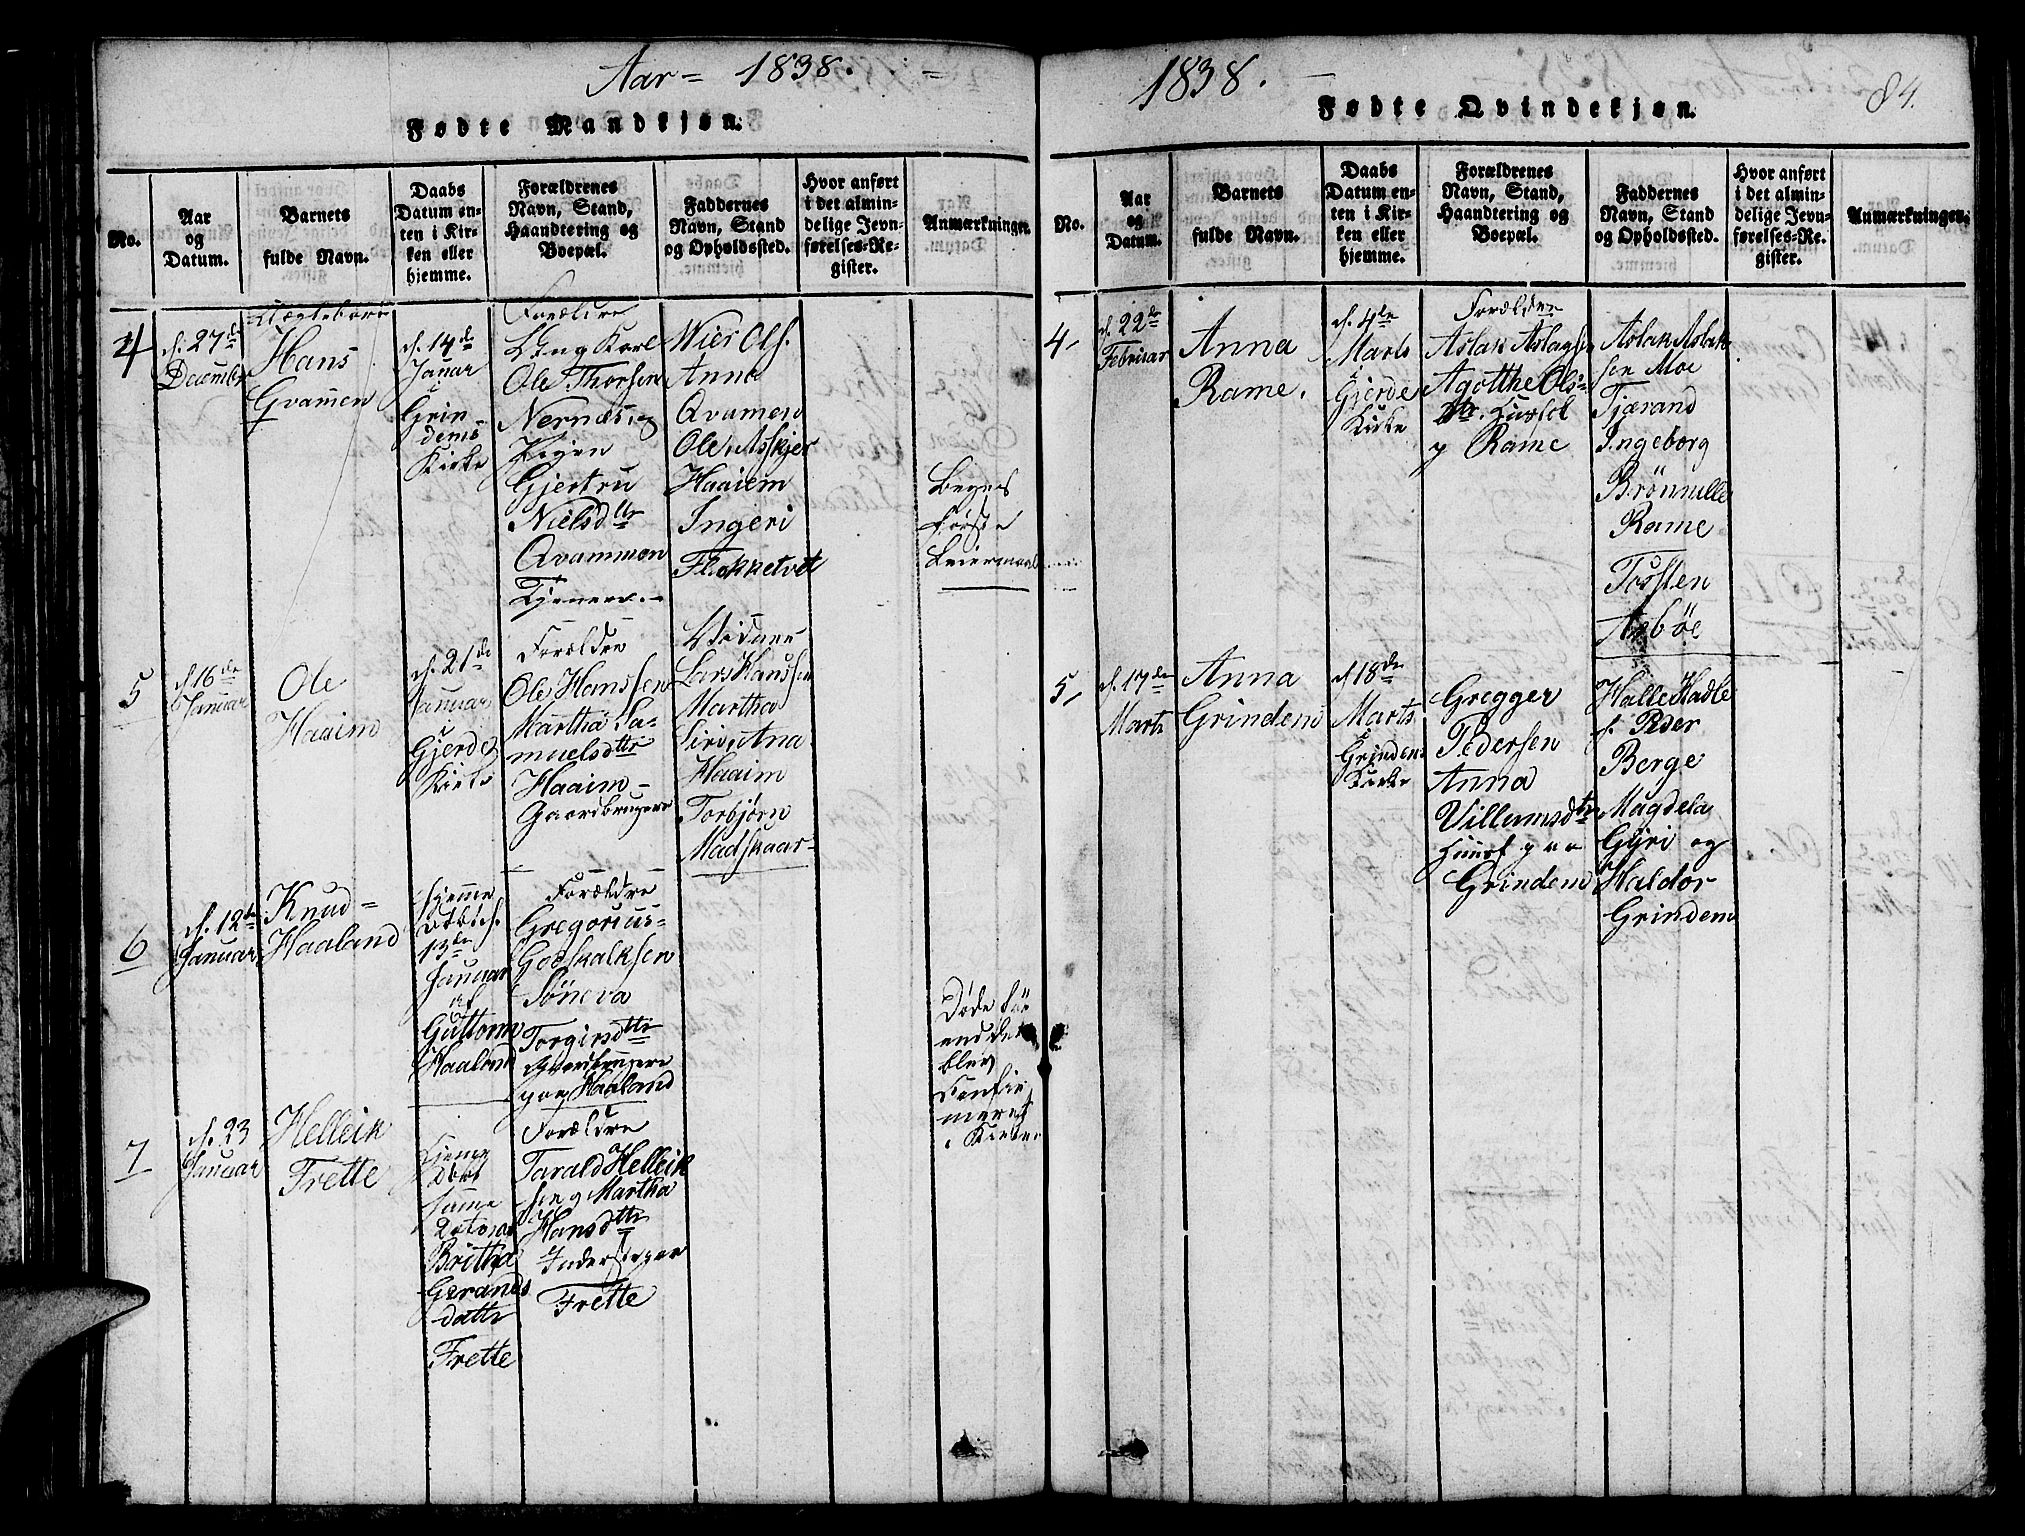 Aar = 1838.
Fødte Mandkjøn.
No.
Aar
og
Datum.
Barnets
fulde Navn.
Daabs
Datum en-
ten i Kir-
ken eller
hjemme.
Forældrenes
Navn, Stand,
Haandtering og
Boepæl.
Faddernes
Navn, Stand
og Opholdssted.
Hvor anført
i det almin-
delige Jevn-
førelses-Re-
gister.
Anmærkninger.
4
d. 27de
December
Hans
Qvamen
d. 14de
Januar
i
Grin
dems
Kirke
Forældre
Ung Karl
Ole Thorsen
Nernæs og
Pigen
Gjertru
Nielsdtr
Qvammen
Tjenere.
Niels Ols.
Anna
Qvamen
Ole Asskjer
Haaiem
Ingeri
Flokketvet
Begges
første
Leiermaal
5
d. 16de
Januar
Ole
Haaim
d. 21de
Januar
i
Gjerde
Kirke
Forældre
Ole Hanssen
Martha Sa-
muelsdtr
Haaim
Gaardbrugere
Lars Hanssen
Martha
Siri, Ana
Haaim
Torbjørn
Madskaar
6
d. 12te
Januar
Knud
Haaland
hjemme
døbt d.
13de
Januar
af
Guttorm
Haaland
Forældre
Gregorius
Godskalksen
Søneva
Torgirsdtr
paa Haaland
Døde før
end det
blev
Confir
meret
i Kirken
7
d. 23
Januar
Helleik
Frette
hjeme
døbt
samme
Dato af
Britha
Gerands
datter
Frette
Forældre
Tarald Helleik
sen og Martha
Hansdtr
Inderster paa
Frette
1838.
84.
Fødte Qvindekjøn.
No.
Aar
og
Datum.
Barnets
fulde Navn.
Daabs
Datum en-
ten i Kir-
ken eller
hjemme.
Forældrenes
Navn, Stand,
Haandtering og
Boepæl.
Faddernes
Navn, Stand
og Opholdssted.
Hvor anført
i det almin-
delige Jevn-
førelses-Re-
gister.
Anmærkninger.
4
d. 22de
Februar
Anna
Rame.
d. 4de
Marts
i
Gjerde
Kirke
Forældre
Aslak Aslagsen
Agotthe Ols-
Rame
Aslak Aslak
sen Moe
Tjærand
Ingeborg
Brønnille
Rame
Torsten
Aebøe
5
d. 17de
Marts
Anna
Grindem
d 18de
Marts
i
Grindens
Kirke
Gregger
Pedersen
Anna
Villumsdtr
Grindem
Halle Hadle
s. Peder
Berge
Magdela
Gyri og
Haldor
Grindem